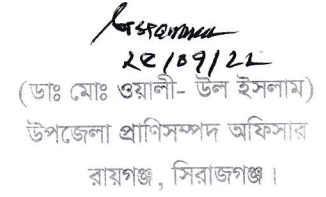 ২৫/০৭/২২
(ডাঃ মোঃ ওয়ালী- উল ইসলাম)
উপজেলা প্রাণিসম্পদ অফিসার
রায়গঞ্জ, সিরাজগঞ্জ।